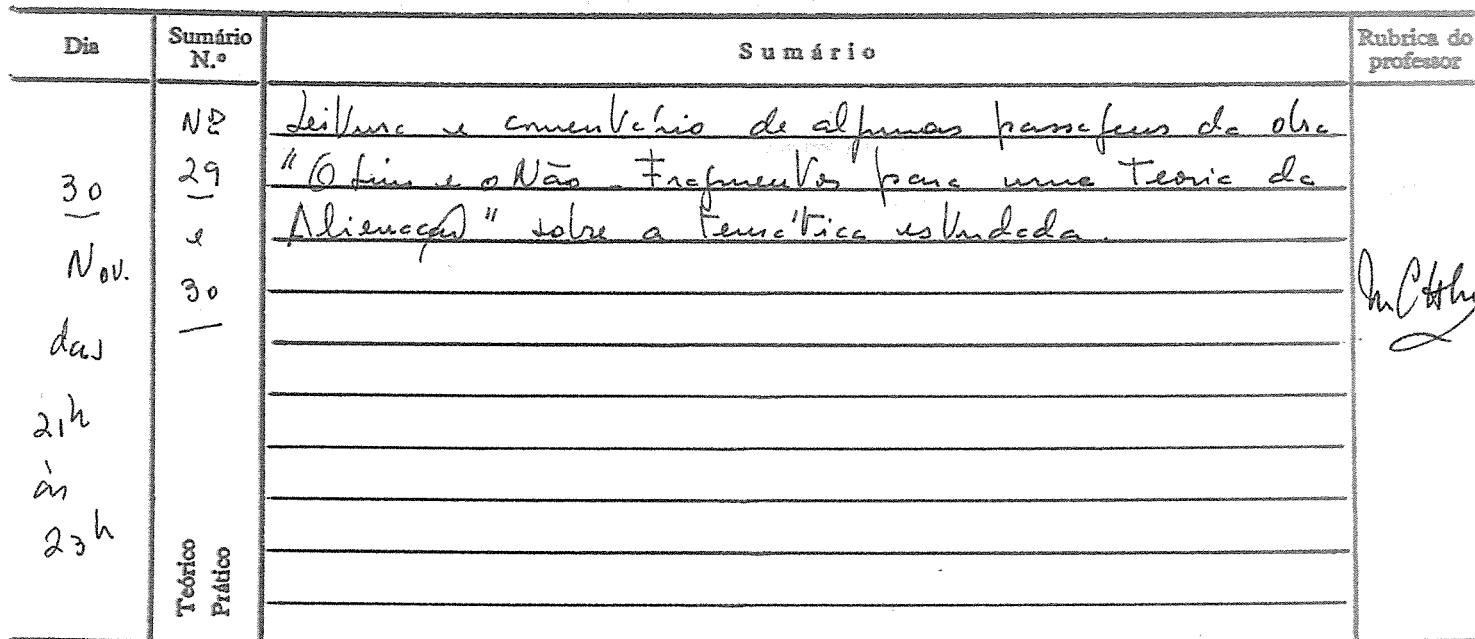 Dia
Sumário N.º
Sumário
Rubrica do professor
30
Nov.
das
21h
às
23h
Nº
29
e
30
Teórico
Prático
Leitura e comentário de algumas passagens da obra
"O Sim e o Não - Fragmentos para uma Teoria da
Alienação" sobre a temática estudada.